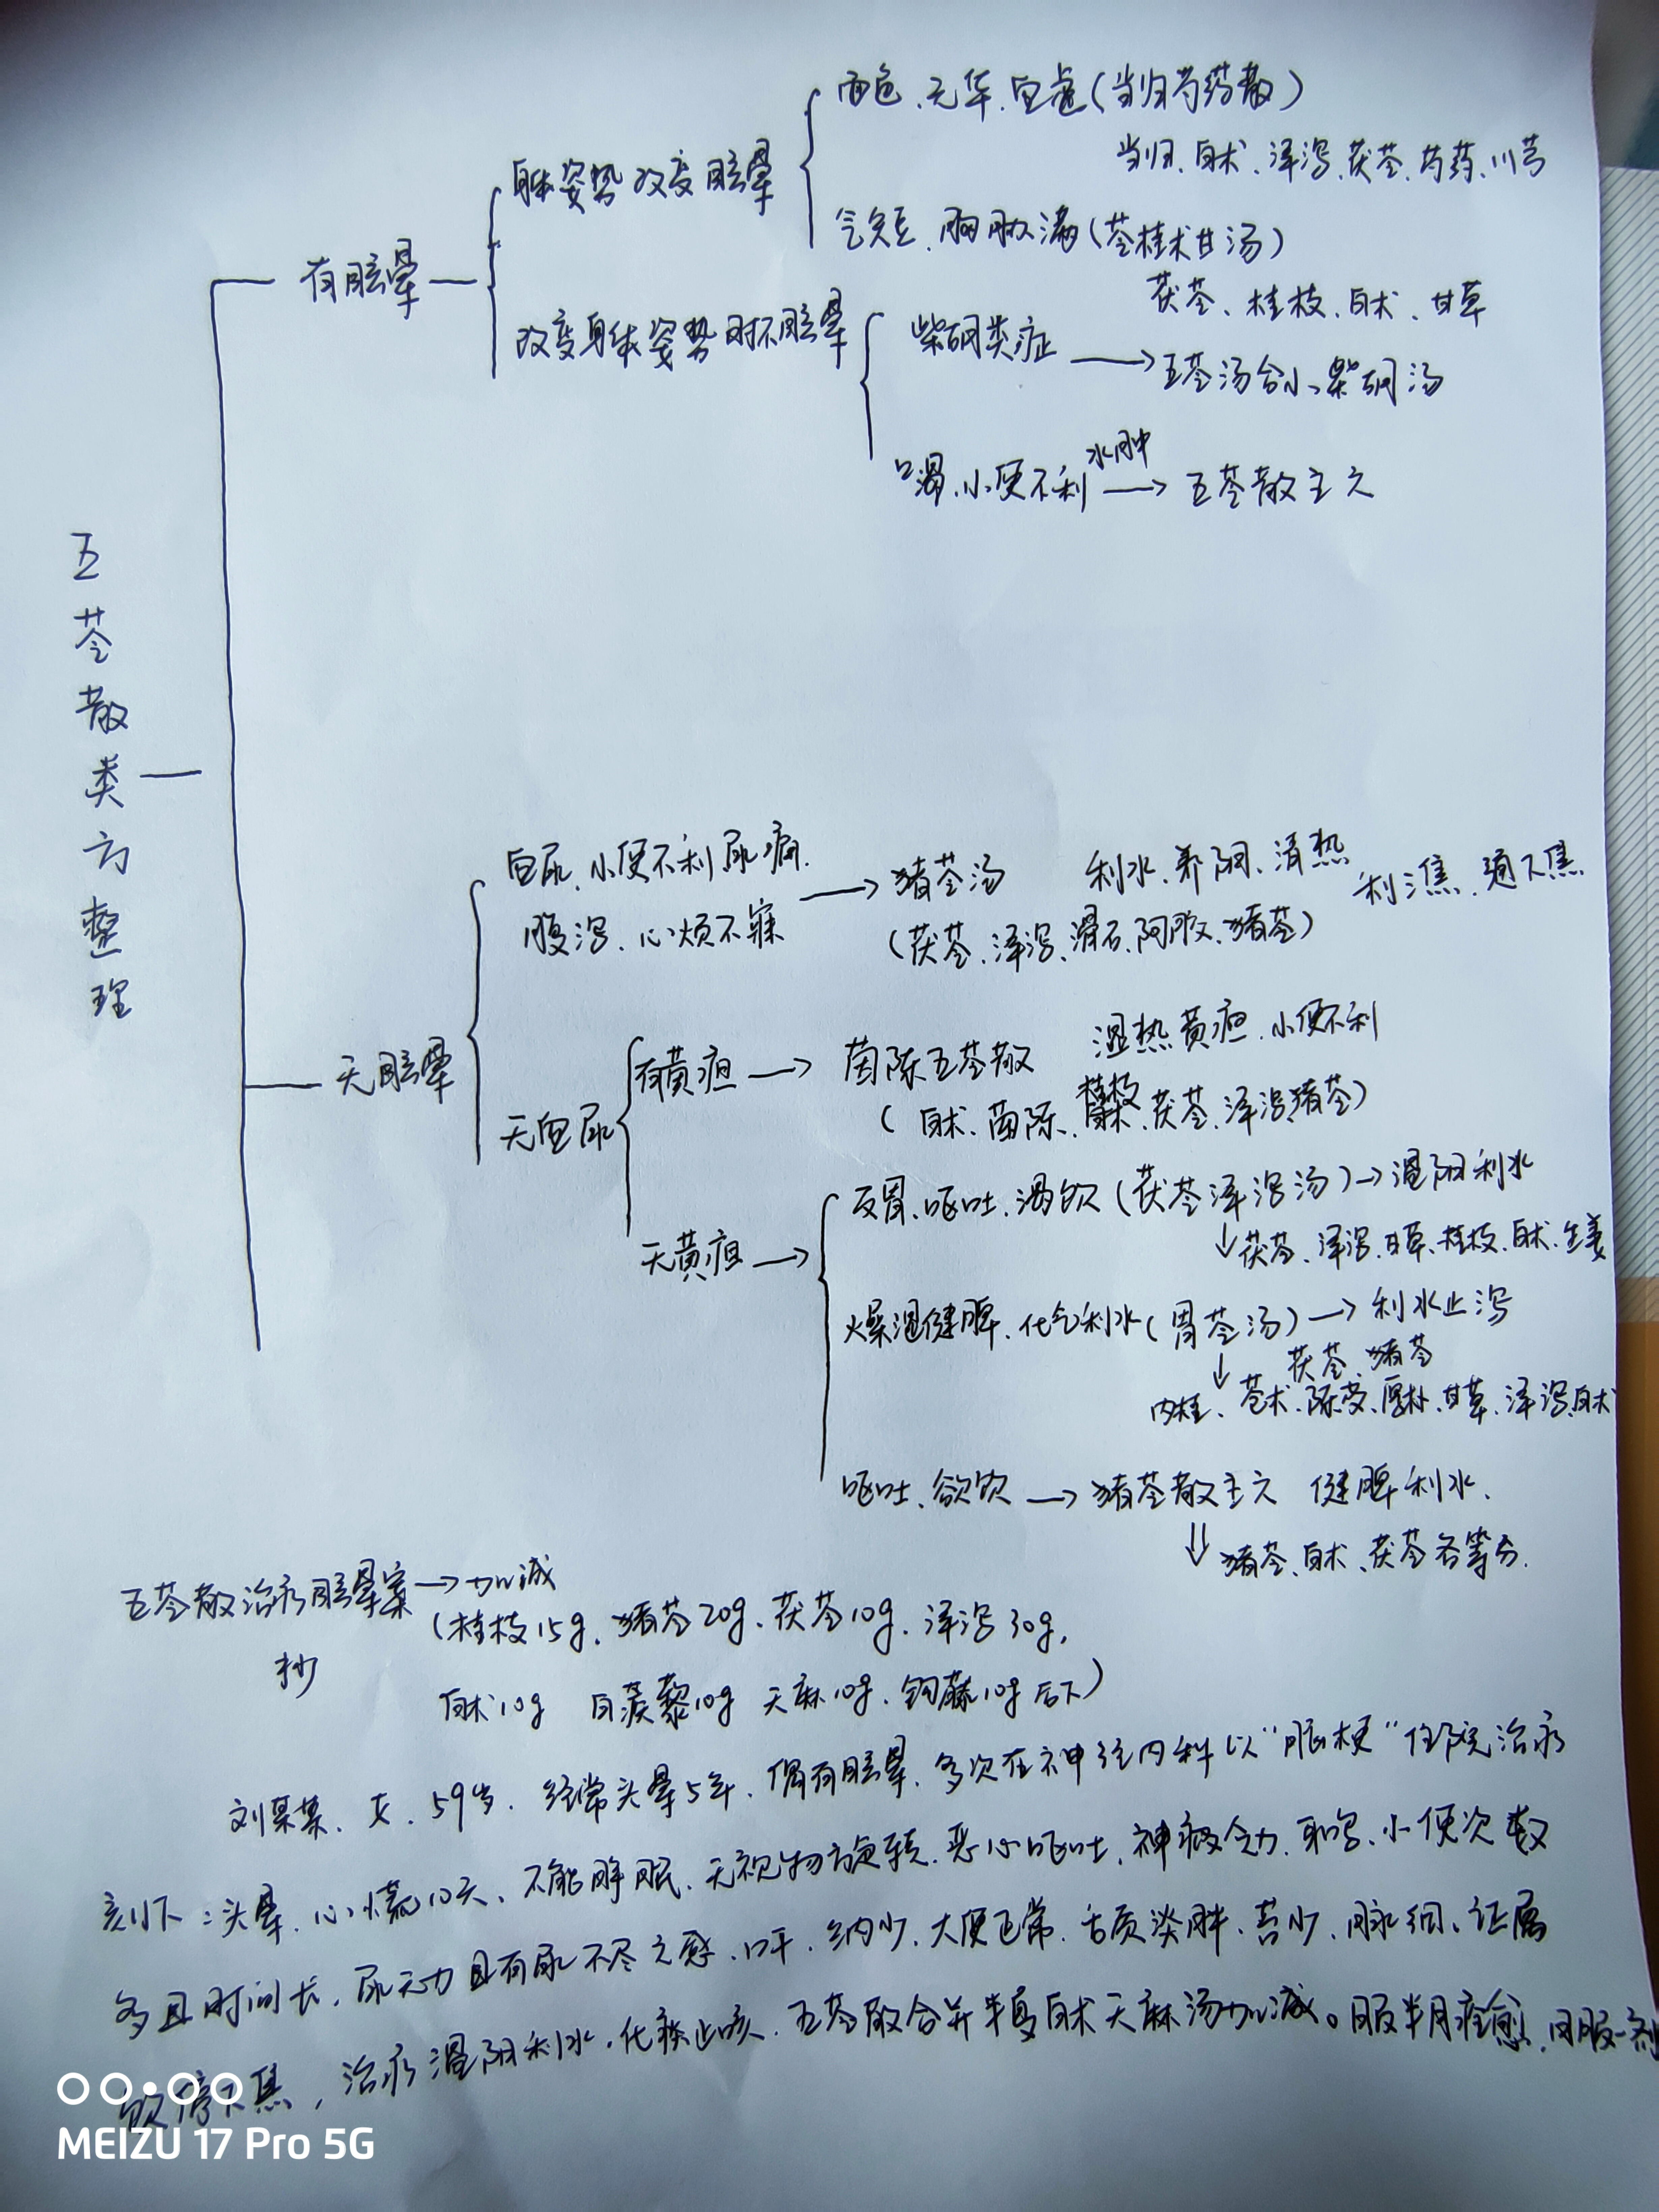 五苓散类方整理
有眩晕
身体姿势改变眩晕
面色、无华、血虚(当归芍药散)
当归、白术、泽泻、茯苓、芍药、川芎
气短、胸胁满(苓桂术甘汤)
茯苓、桂枝、白术、甘草
改变身体姿势时不眩晕
柴胡类症
五苓汤合小柴胡汤
口渴、小便不利
水肿
五苓散主之
无眩晕
血尿、小便不利尿痛.
腹泻、心烦不寐
猪苓汤
利水、养阴、清热
利三焦、通下焦
(茯苓、泽泻、滑石、阿胶、猪苓)
无血尿
有黄疸
茵陈五苓散
湿热黄疸、小便不利
(白术、茵陈、桂枝、茯苓、泽泻、猪苓)
无黄疸
反胃、呕吐、渴饮(茯苓泽泻汤)→温阳利水
↓茯苓、泽泻、甘草、桂枝、白术、生姜
燥湿健脾、化气利水(胃苓汤)→利水止泻
↓
茯苓、猪苓
肉桂、苍术、陈皮、厚朴、甘草、泽泻、白术
呕吐、欲饮→猪苓散主之 健脾利水.
⇓猪苓、白术、茯苓各等分.
五苓散治疗眩晕案→加减
抄
(桂枝15g、猪苓20g、茯苓10g、泽泻30g,
白术10g 白蒺藜10g 天麻10g、钩藤10g后下)
刘某某、女、59岁、经常头晕5年、偶有眩晕、多次在神经内科以“脑梗”住院治疗
刻下:头晕、心慌10天、不能睁眼、无视物旋转、恶心呕吐、神疲乏力、耳鸣、小便次数
多且时间长,尿无力且有尿不尽之感、口干、纳少、大便正常、舌质淡胖、苔少、脉细、证属
饮停下焦,治疗温阳利水、化痰止咳、五苓散合并半夏白术天麻汤加减。服半月痊愈、日服一剂
MEIZU 17 Pro 5G